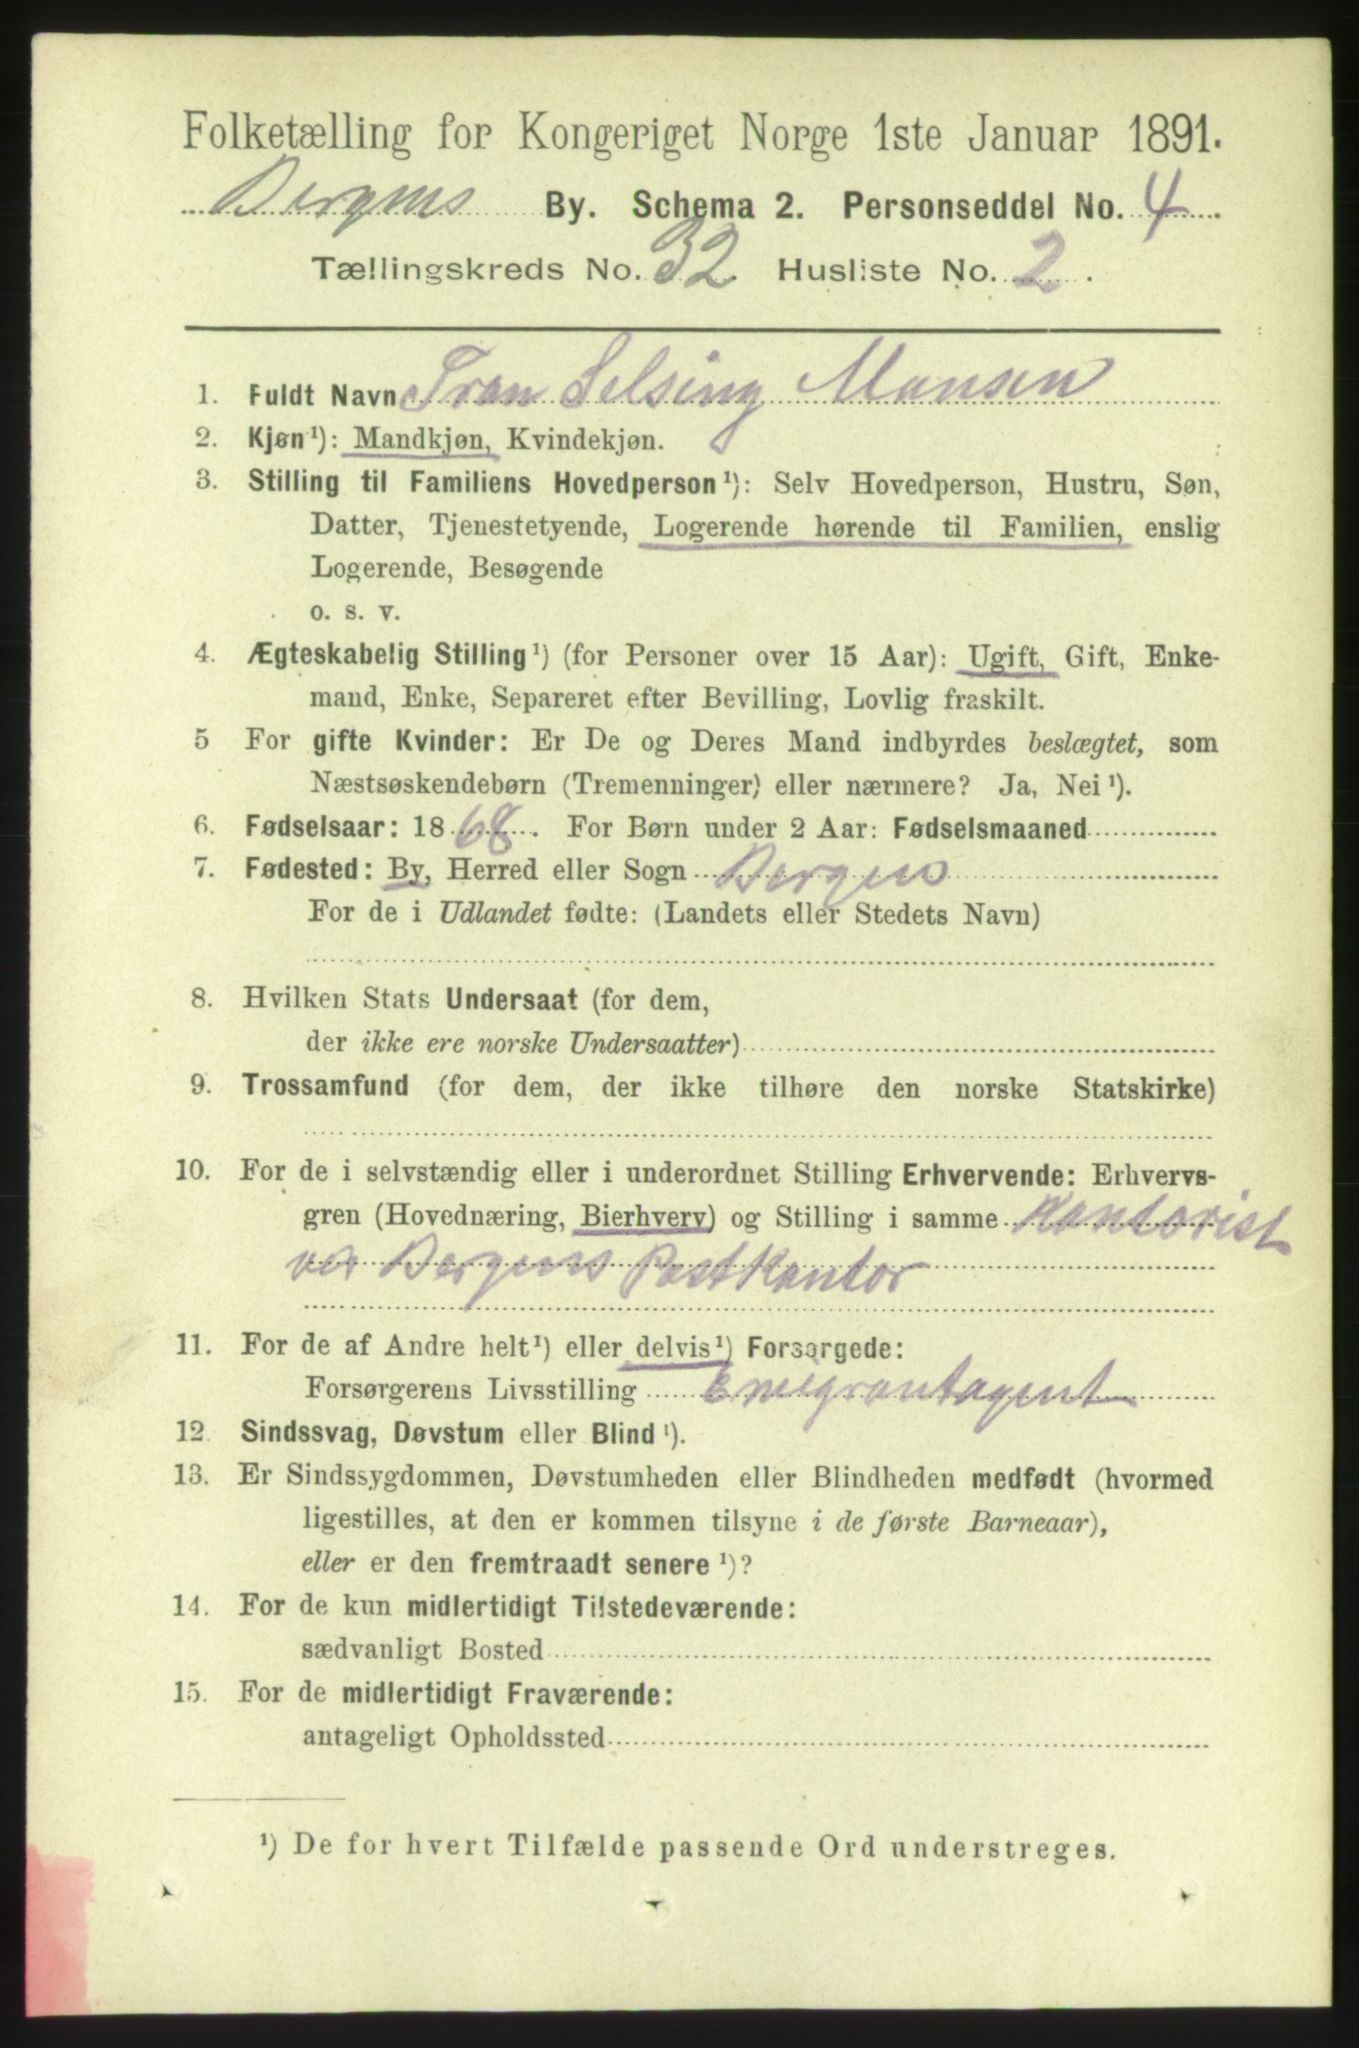 Folketælling for Kongeriget Norge 1ste Januar 1891.
Bergens By. Schema 2. Personseddel No. 4.
Tællingskreds No. 32 Husliste No. 2.
1. Fuldt Navn Selsing Monsen
2. Kjøn¹): Mandkjøn, Kvindekjøn.
3. Stilling til Familiens Hovedperson¹): Selv Hovedperson, Hustru, Søn,
Datter, Tjenestetyende, Logerende hørende til Familien, enslig
Logerende, Besøgende
o. s. v.
4. Ægteskabelig Stilling¹) (for Personer over 15 Aar): Ugift, Gift, Enke-
mand, Enke, Separeret efter Bevilling, Lovlig fraskilt.
5 For gifte Kvinder: Er De og Deres Mand indbyrdes beslægtet, som
Næstsøskendebørn (Tremenninger) eller nærmere? Ja, Nei¹).
6. Fødselsaar: 1868. For Børn under 2 Aar: Fødselsmaaned
7. Fødested: By, Herred eller Sogn Bergens
For de i Udlandet fødte: (Landets eller Stedets Navn)
8. Hvilken Stats Undersaat (for dem,
der ikke ere norske Undersaatter)
9. Trossamfund (for dem, der ikke tilhøre den norske Statskirke)
10. For de i selvstændig eller i underordnet Stilling Erhvervende: Erhvervs-
gren (Hovednæring, Bierhverv) og Stilling i samme Kontorist
ved Bergens Postkontor
11. For de af Andre helt¹) eller delvis¹) Forsørgede:
Forsørgerens Livsstilling Emigrantagent
12. Sindssvag, Døvstum eller Blind¹).
13. Er Sindssygdommen, Døvstumheden eller Blindheden medfødt (hvormed
ligestilles, at den er kommen tilsyne i de første Barneaar),
eller er den fremtraadt senere¹)?
14. For de kun midlertidigt Tilstedeværende:
sædvanligt Bosted
15. For de midlertidigt Fraværende:
antageligt Opholdssted
¹) De for hvert Tilfælde passende Ord understreges.